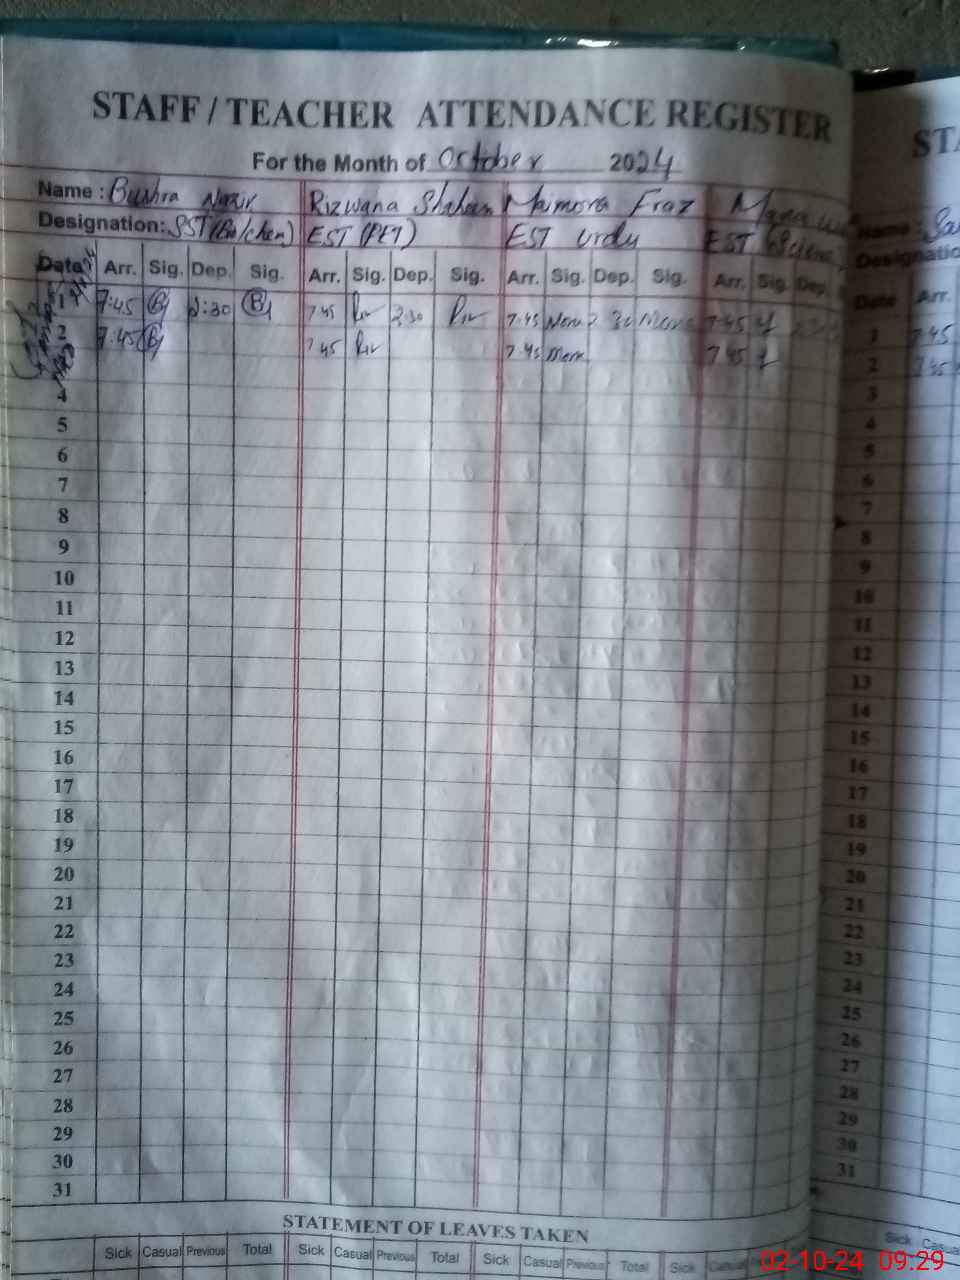 STAFF / TEACHER ATTENDANCE REGISTER
For the Month of October 2024
Name : Bushra Nazir Rizwana Shaheen Maimona Fraz
Designation: SST (Bio/chem) EST (PET) EST Urdu EST (Science)
Date Arr. Sig. Dep. Sig. Arr. Sig. Dep. Sig. Arr. Sig. Dep. Sig. Arr. Sig. Dep.
1 7:45 2:30 7 45 Riz 2:30 Riz 7:45 7 45
2 7:45 7 45 Riz 7 45 7 45
4
5
6
7
8
9
10
11
12
13
14
15
16
17
18
19
20
21
22
23
24
25
26
27
28
29
30
31
STATEMENT OF LEAVES TAKEN
Sick Casual Previous Total Sick Casual Previous Total Sick Casual Previous Total Sick
Name :
Date Arr.
1 7 45
2
3
4
5
6
7
8
9
10
11
12
13
14
15
16
17
18
19
20
21
22
23
24
25
26
27
28
29
30
31
Sick
02-10-24 09:29